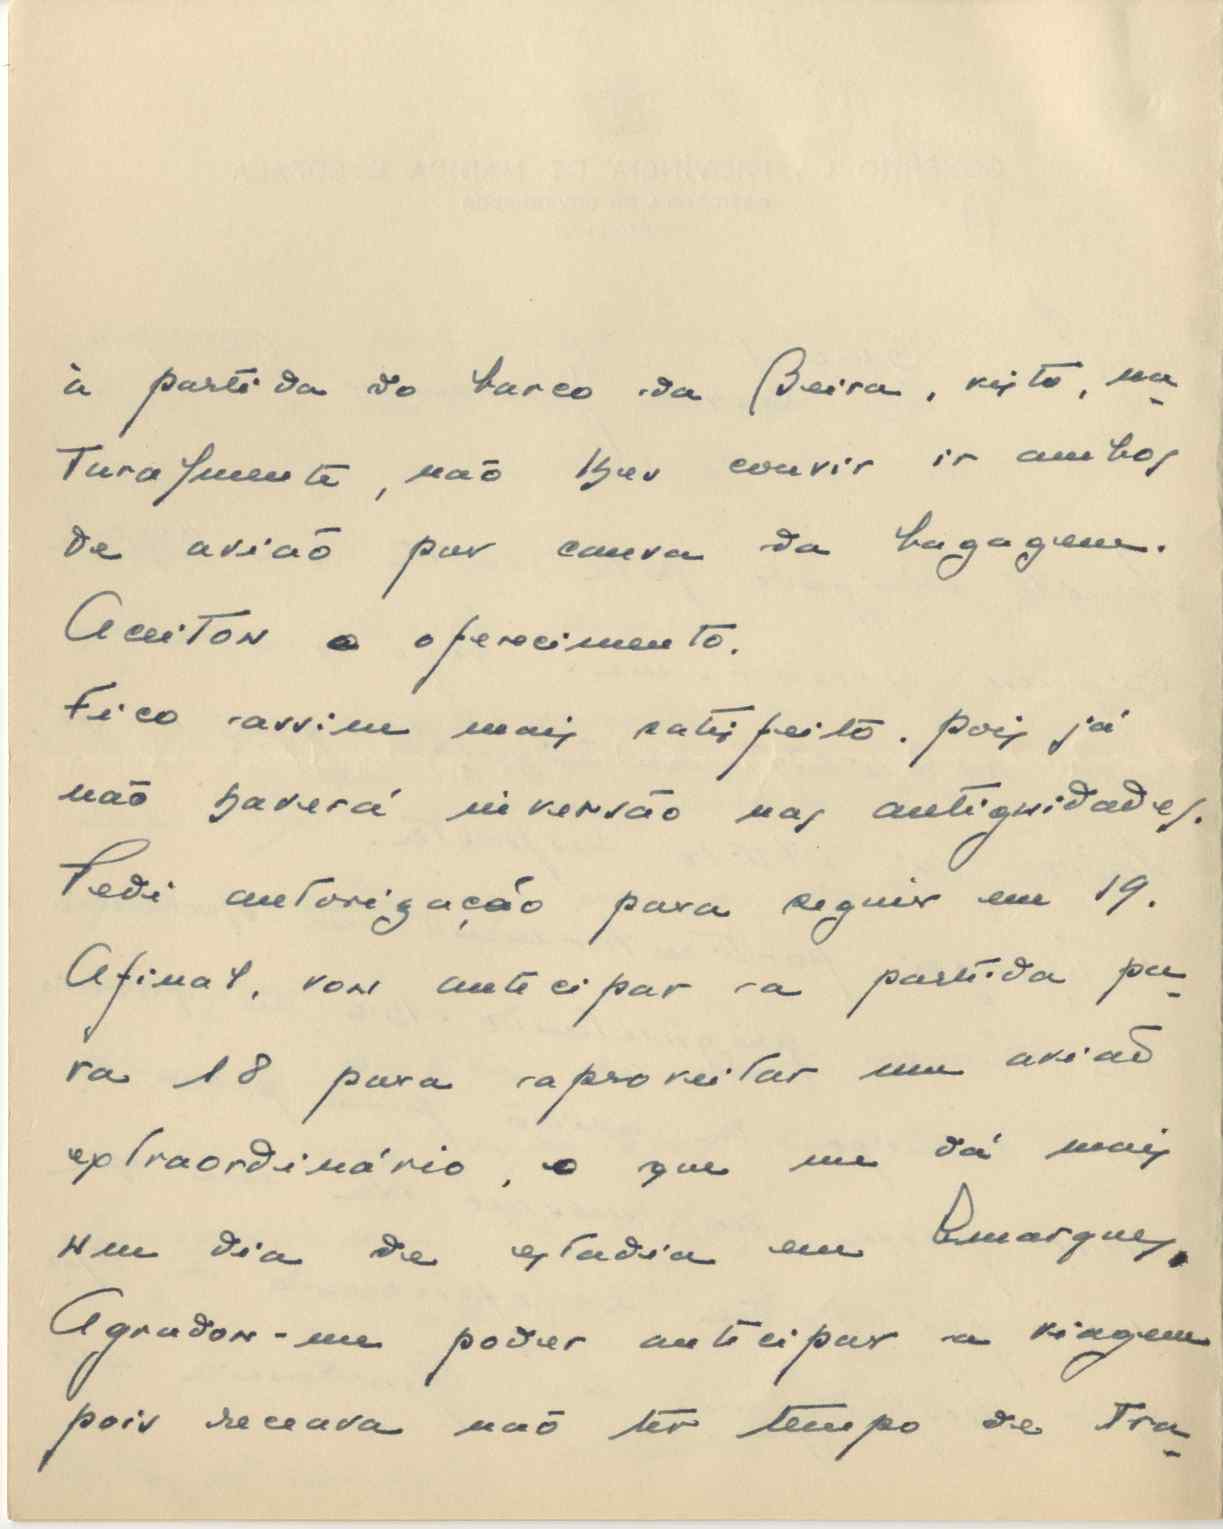 à partida do barco da Beira, visto, na-
turalmente, não lhes convir ir ambos
de avião por causa da bagagem.
Aceitou o oferecimento.
Fico assim mais satisfeito. pois já
não haverá inversão nas antiguidades.
Pedi autorização para seguir em 19.
Afinal, vou antecipar a partida pa-
ra 18 para aproveitar um avião
extraordinário, o que me dá mais
um dia de estadia em Lmarques.
Agradou-me poder antecipar a viagem
pois receava não ter tempo de tra-